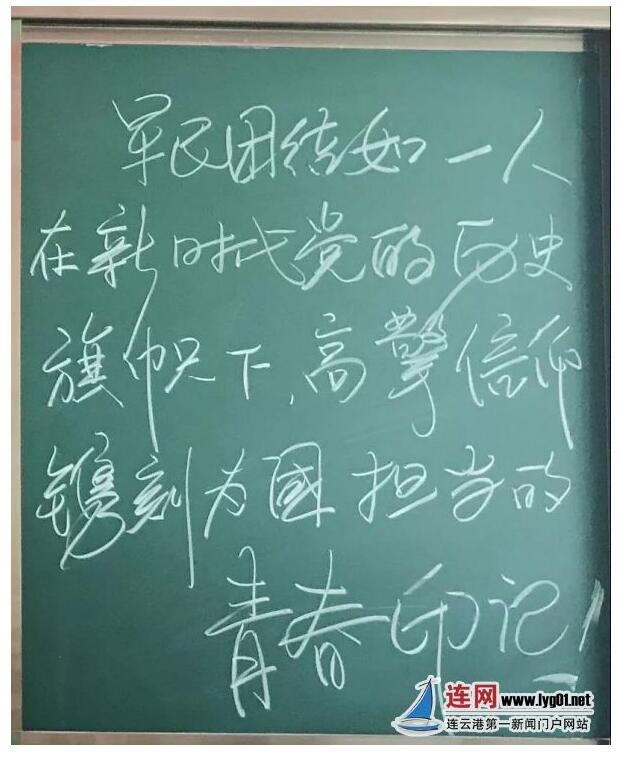 军民团结如一人
在新时代党的历史
旗帜下,高擎信仰
镌刻为國担当的
青春印记!
连网 www.lyg01.net
连云港第一新闻门户网站